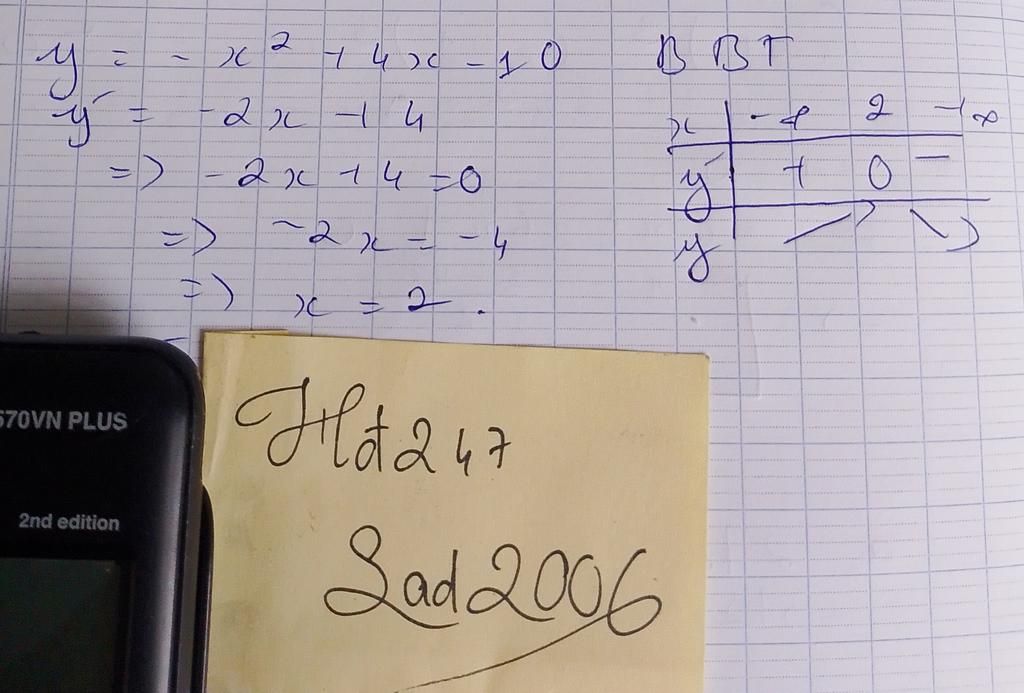 y = -x² + 4x - 10
y' = -2x + 4
=> -2x + 4 = 0
=> -2x = -4
=> x = 2.
BBT
x | -∞ 2 +∞
y' | + 0 -
y | ↗ ↘
570VN PLUS
2nd edition
Hđ247
Sad2006